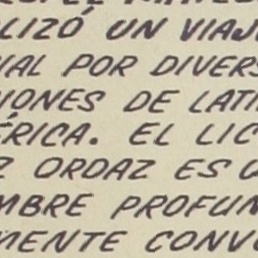 LIZÓ UN VIAJ
IAL POR DIVERS
IONES DE LATI
ÉRICA. EL LIC
Z ORDAZ ES U
MBRE PROFUN
MENTE CONV